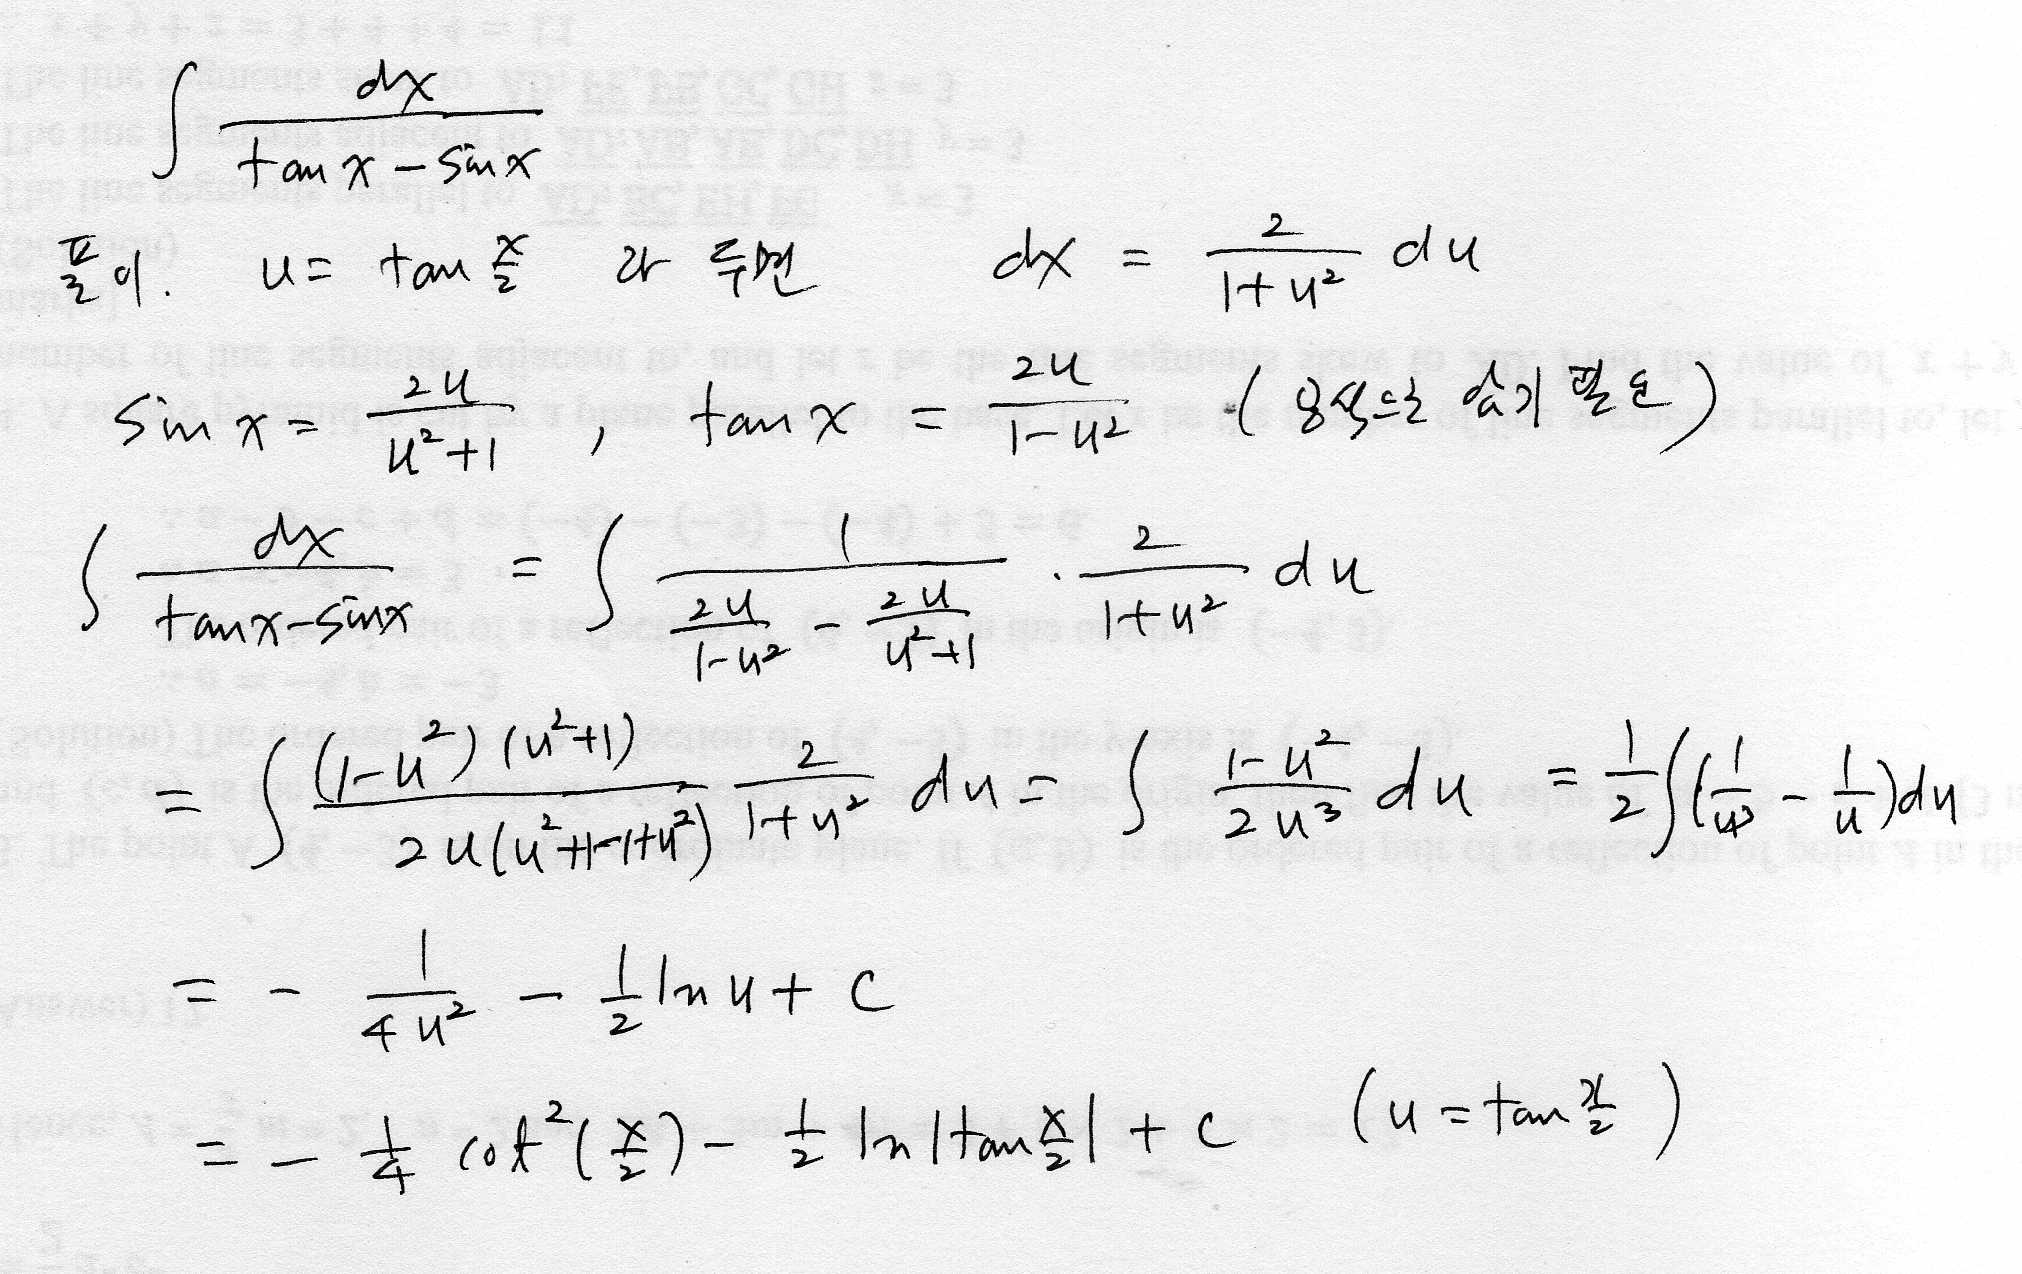 ∫ dx/(tan x − sin x)
풀이. u = tan x/2 라 두면 dx = 2/(1+u²) du
sin x = 2u/(u²+1) , tan x = 2u/(1−u²) (공식으로 암기 필요)
∫ dx/(tanx−sinx) = ∫ 1/(2u/(1−u²) − 2u/(u²+1)) · 2/(1+u²) du
= ∫ (1−u²)(u²+1)/(2u(u²+1−1+u²)) 2/(1+u²) du = ∫ (1−u²)/(2u³) du = 1/2 ∫(1/u³ − 1/u)du
= − 1/(4u²) − 1/2 ln u + C
= − 1/4 cot²(x/2) − 1/2 ln|tan x/2| + C (u = tan x/2)